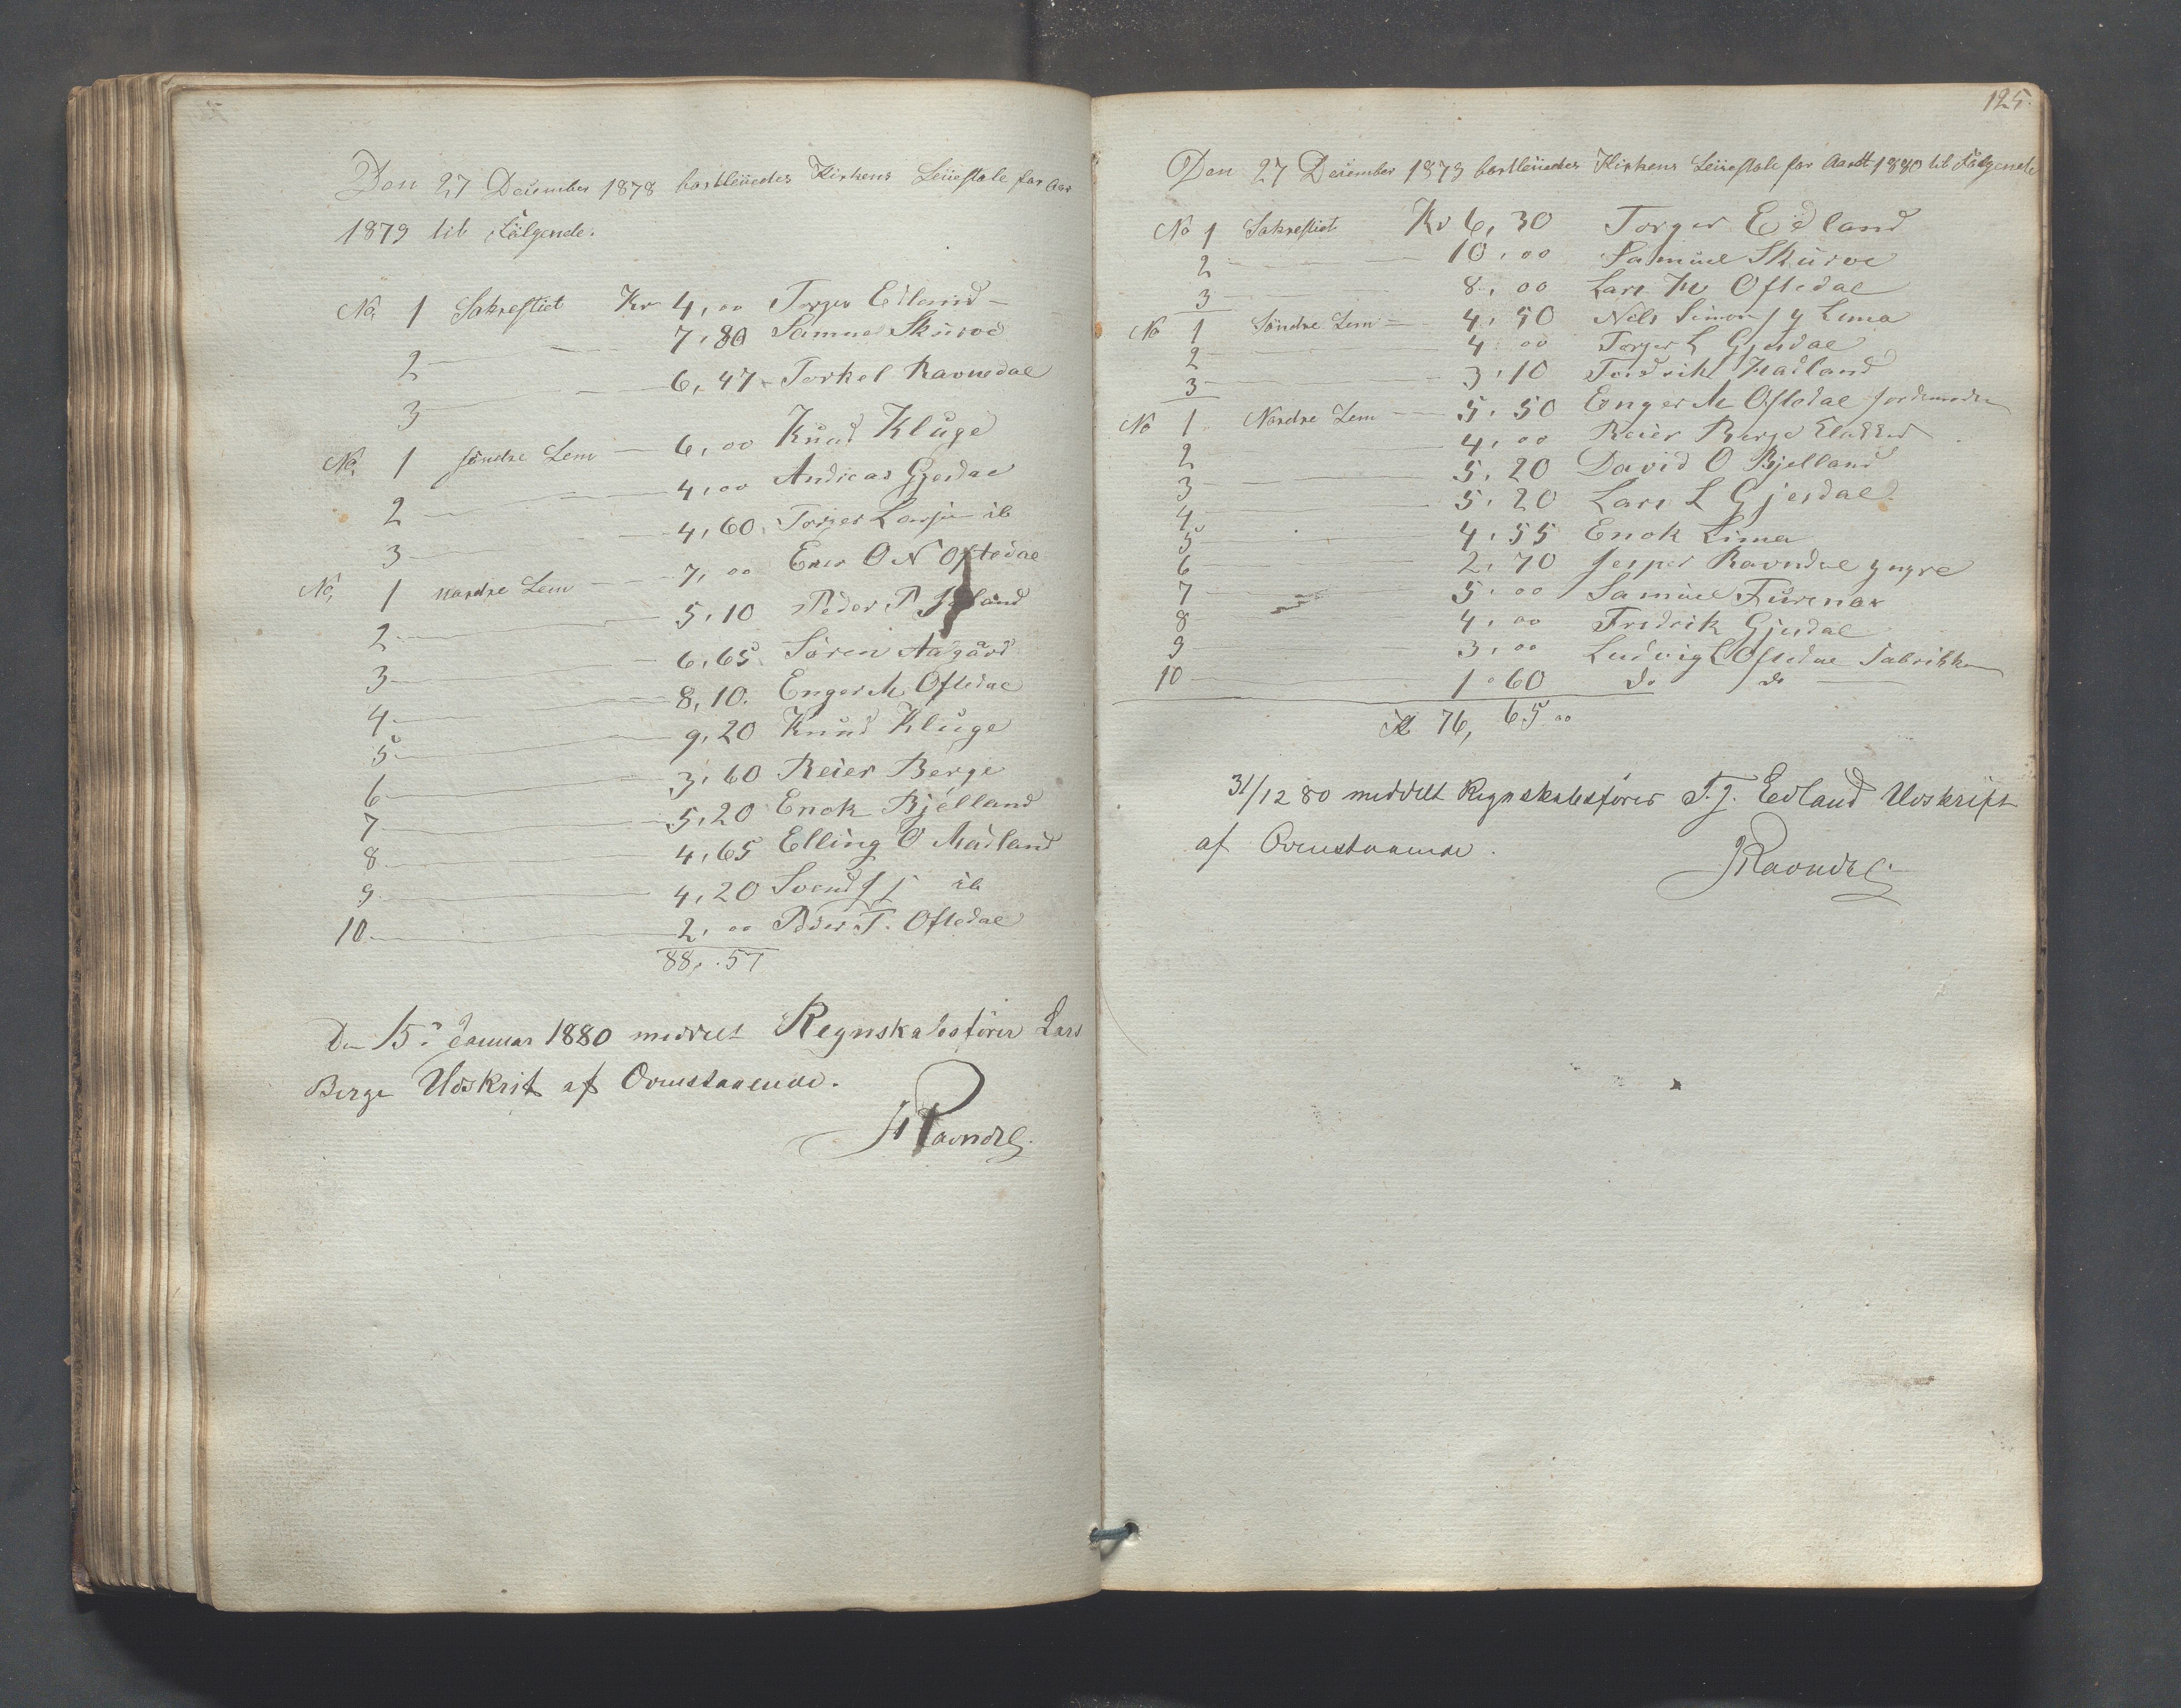 Den 27 December 1878 bortleiedes Kirkens Leiestole for Aar
1879 til Følgende.
No, 1 Sakrestiet Kr 4,00 Torger Edland
2 — 7,80 Samuel Skurve
3 — 6,47 Torkel Ravnedal
No, 1 søndre Lem — 6,00 Knud Kluge
2 — 4,00 Andreas Gjesdal
3 — 4,60 Torger Larsen ib
No, 1 nordre Lem — 7,00 O N Oftedal
2 — 5,10 Peder P
3 — 6,65 Søren Aagård
4 — 8,10 Enger M Oftedal
5 — 9,20 Knud Kluge
6 — 3,60 Reier Berge
7 — 5,20 Enok Bjelland
8 — 4,65 Elling O Madland
9 — 4,20 Svend ib
10 — 2,00 Peder T. Oftedal
88,57
Den 15. Januar 1880 meddelt Regnskabsfører Lars
Berge Udskrit af Ovenstaaende.
Ravndal
125.
Den 27 December 1879 bortleiedes Kirkens Leiestole for Aaret 1880 til Følgende
No 1 Sakrestiet Kr 6,30 Torger Edland
2 — 10,00 Samuel Skurve
3 — 8,00 Lars Oftedal
No 1 Søndre Lem — 4,50 Nils Simon Lima
2 — 4,00 Torger L Gjesdal
3 — 3,10 Fredrik Madland
No 1 Nordre Lem — 5,50 Enger M Oftedal Jordemoder
2 — 4,00 Reier Berge
3 — 5,20 David O Bjelland
4 — 5,20 Lars L Gjesdal
5 — 4,55 Enok Lima
6 — 2,70 Jesper Ravndal yngre
7 — 5,00 Samuel Furenak
8 — 4,00 Fredrik Gjesdal
9 — 3,00 Ludvig L Oftedal Fabrikken
10 — 1,60 do do
Kr 76,65
31/12 80 meddelt Regnskabsfører T. J. Edland Udskrift
af Ovenstaaende.
Ravndal